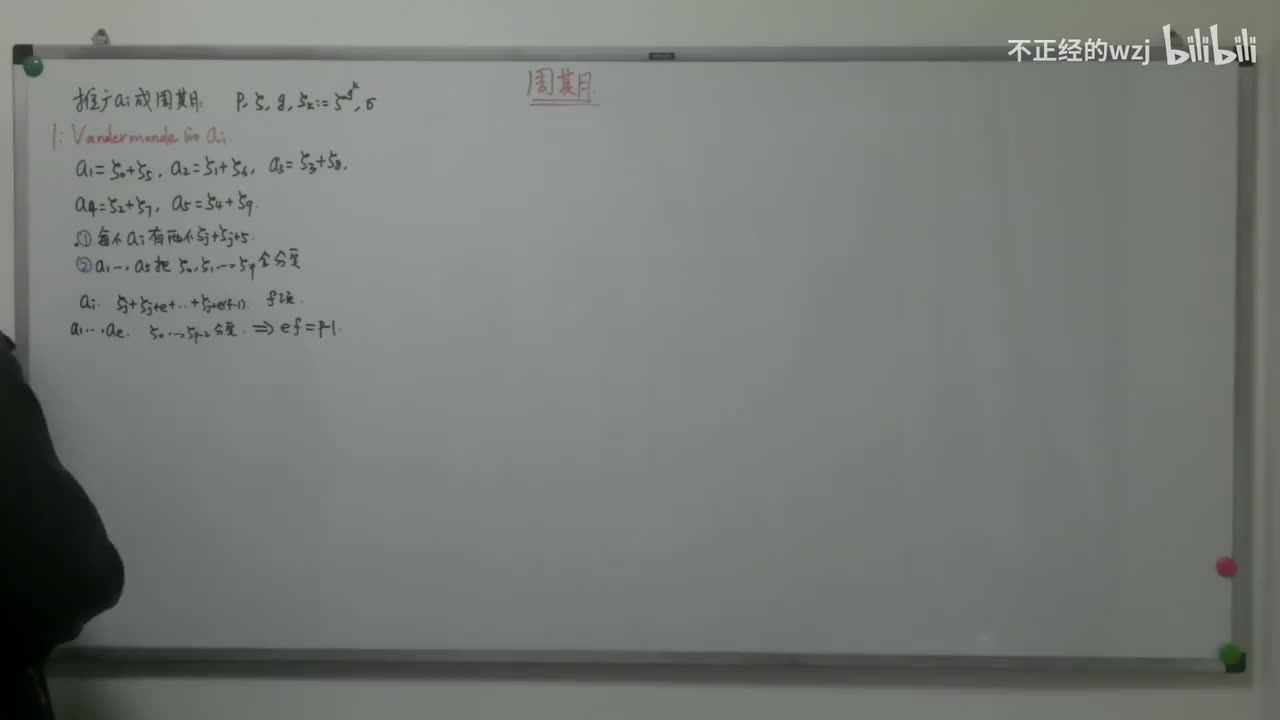 不正经的wzj bilibili
周期
推广aᵢ成周期 p, ζ, g, ζₖ:=ζ^(g^k), σ
1: Vandermonde の aᵢ.
a₁=ζ₀+ζ₅, a₂=ζ₁+ζ₆, a₃=ζ₃+ζ₈,
a₄=ζ₂+ζ₇, a₅=ζ₄+ζ₉.
① 每个aᵢ有两个ζⱼ+ζⱼ₊₅.
② a₁…, a₅把 ζ₀,ζ₁,…,ζ₉全分完
aᵢ. ζⱼ+ζⱼ₊ₑ+…+ζ_{j+e(f-1)} f项.
a₁…,aₑ. ζ₀,…,ζ_{p-2}分完. ⇒ ef=p-1.